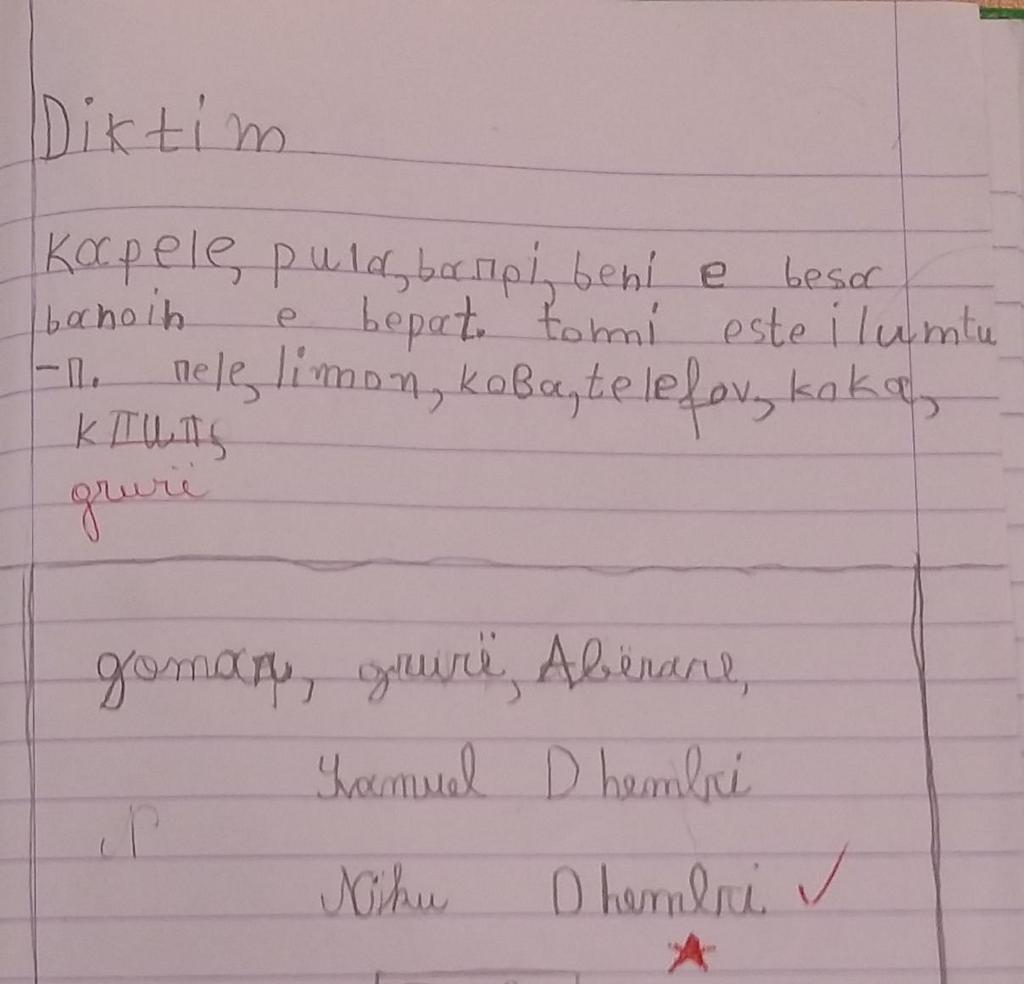 Diktim
kapele, pula, banpi, beni e besa
banoih e bepat. tomi este ilumtu
-п. nele, limon, koBa, telefov, koka,
grurë
gomar, grurë, Abërane,
Samuel Dhembri
N
Niku Dhembri